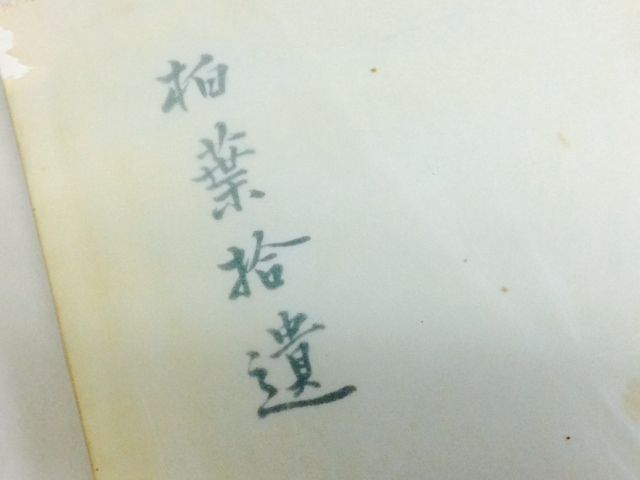 柏葉拾遺